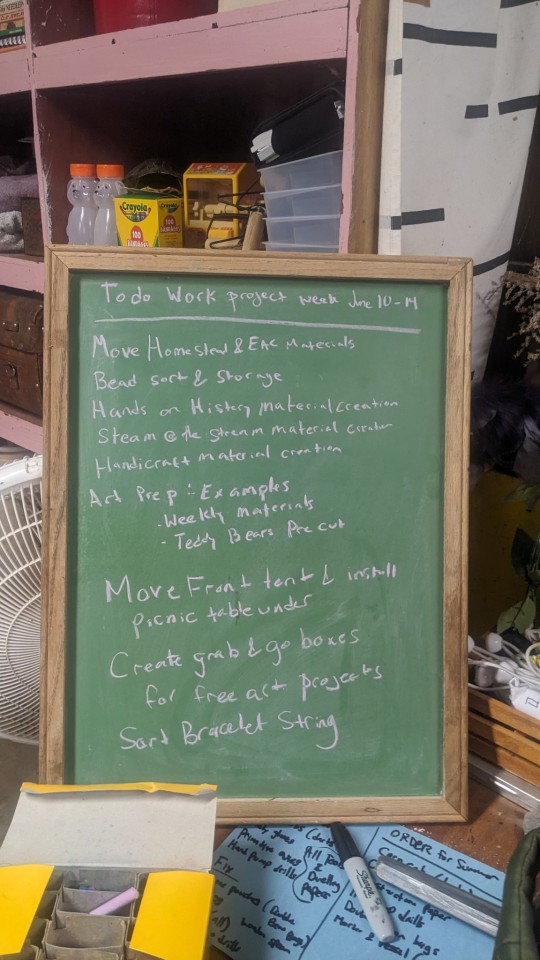 Crayola
100
To do Work project week June 10-14
Move Homestead & EAC Materials
Bead sort & Storage
Hands on History Material Creation
Steam @ the Stream material creation
Handicraft material creation
Art Prep: Examples
- Weekly Materials
- Teddy Bears Pre cut
Move Front tent & install
picnic table under
Create grab & go boxes
for free art projects
Sort Bracelet String
ORDER for Summer
Hand Pump drills
Fix
Paper
Sharpie